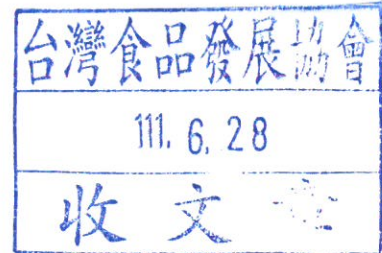 台灣食品發展協會
111. 6. 28
收文